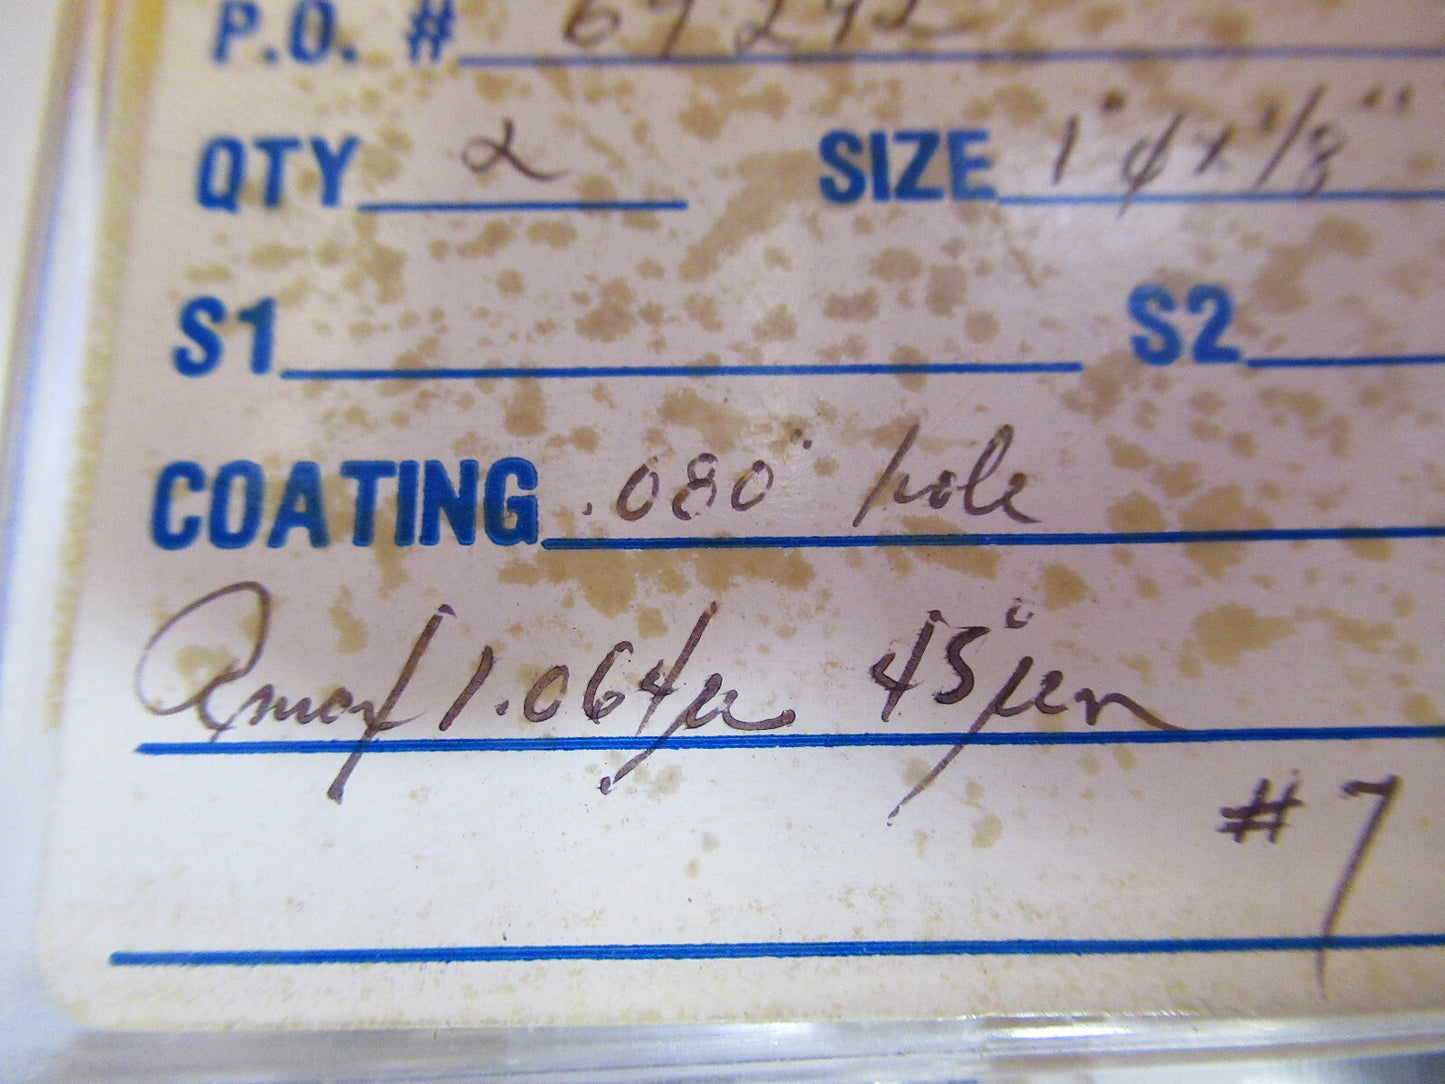 P.O. # 69242
QTY 2 SIZE 1" ¢ x 1/8"
S1 S2
COATING .080" hole
Rmax 1.064µ 45°µm
#7